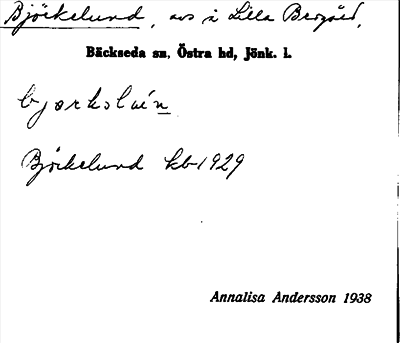 Björkelund, avs å Lilla Bergård,
Bäckseda sn, Östra hd, Jönk. l.
bjørkəluńn
Björkelund kb 1929
Annalisa Andersson 1938